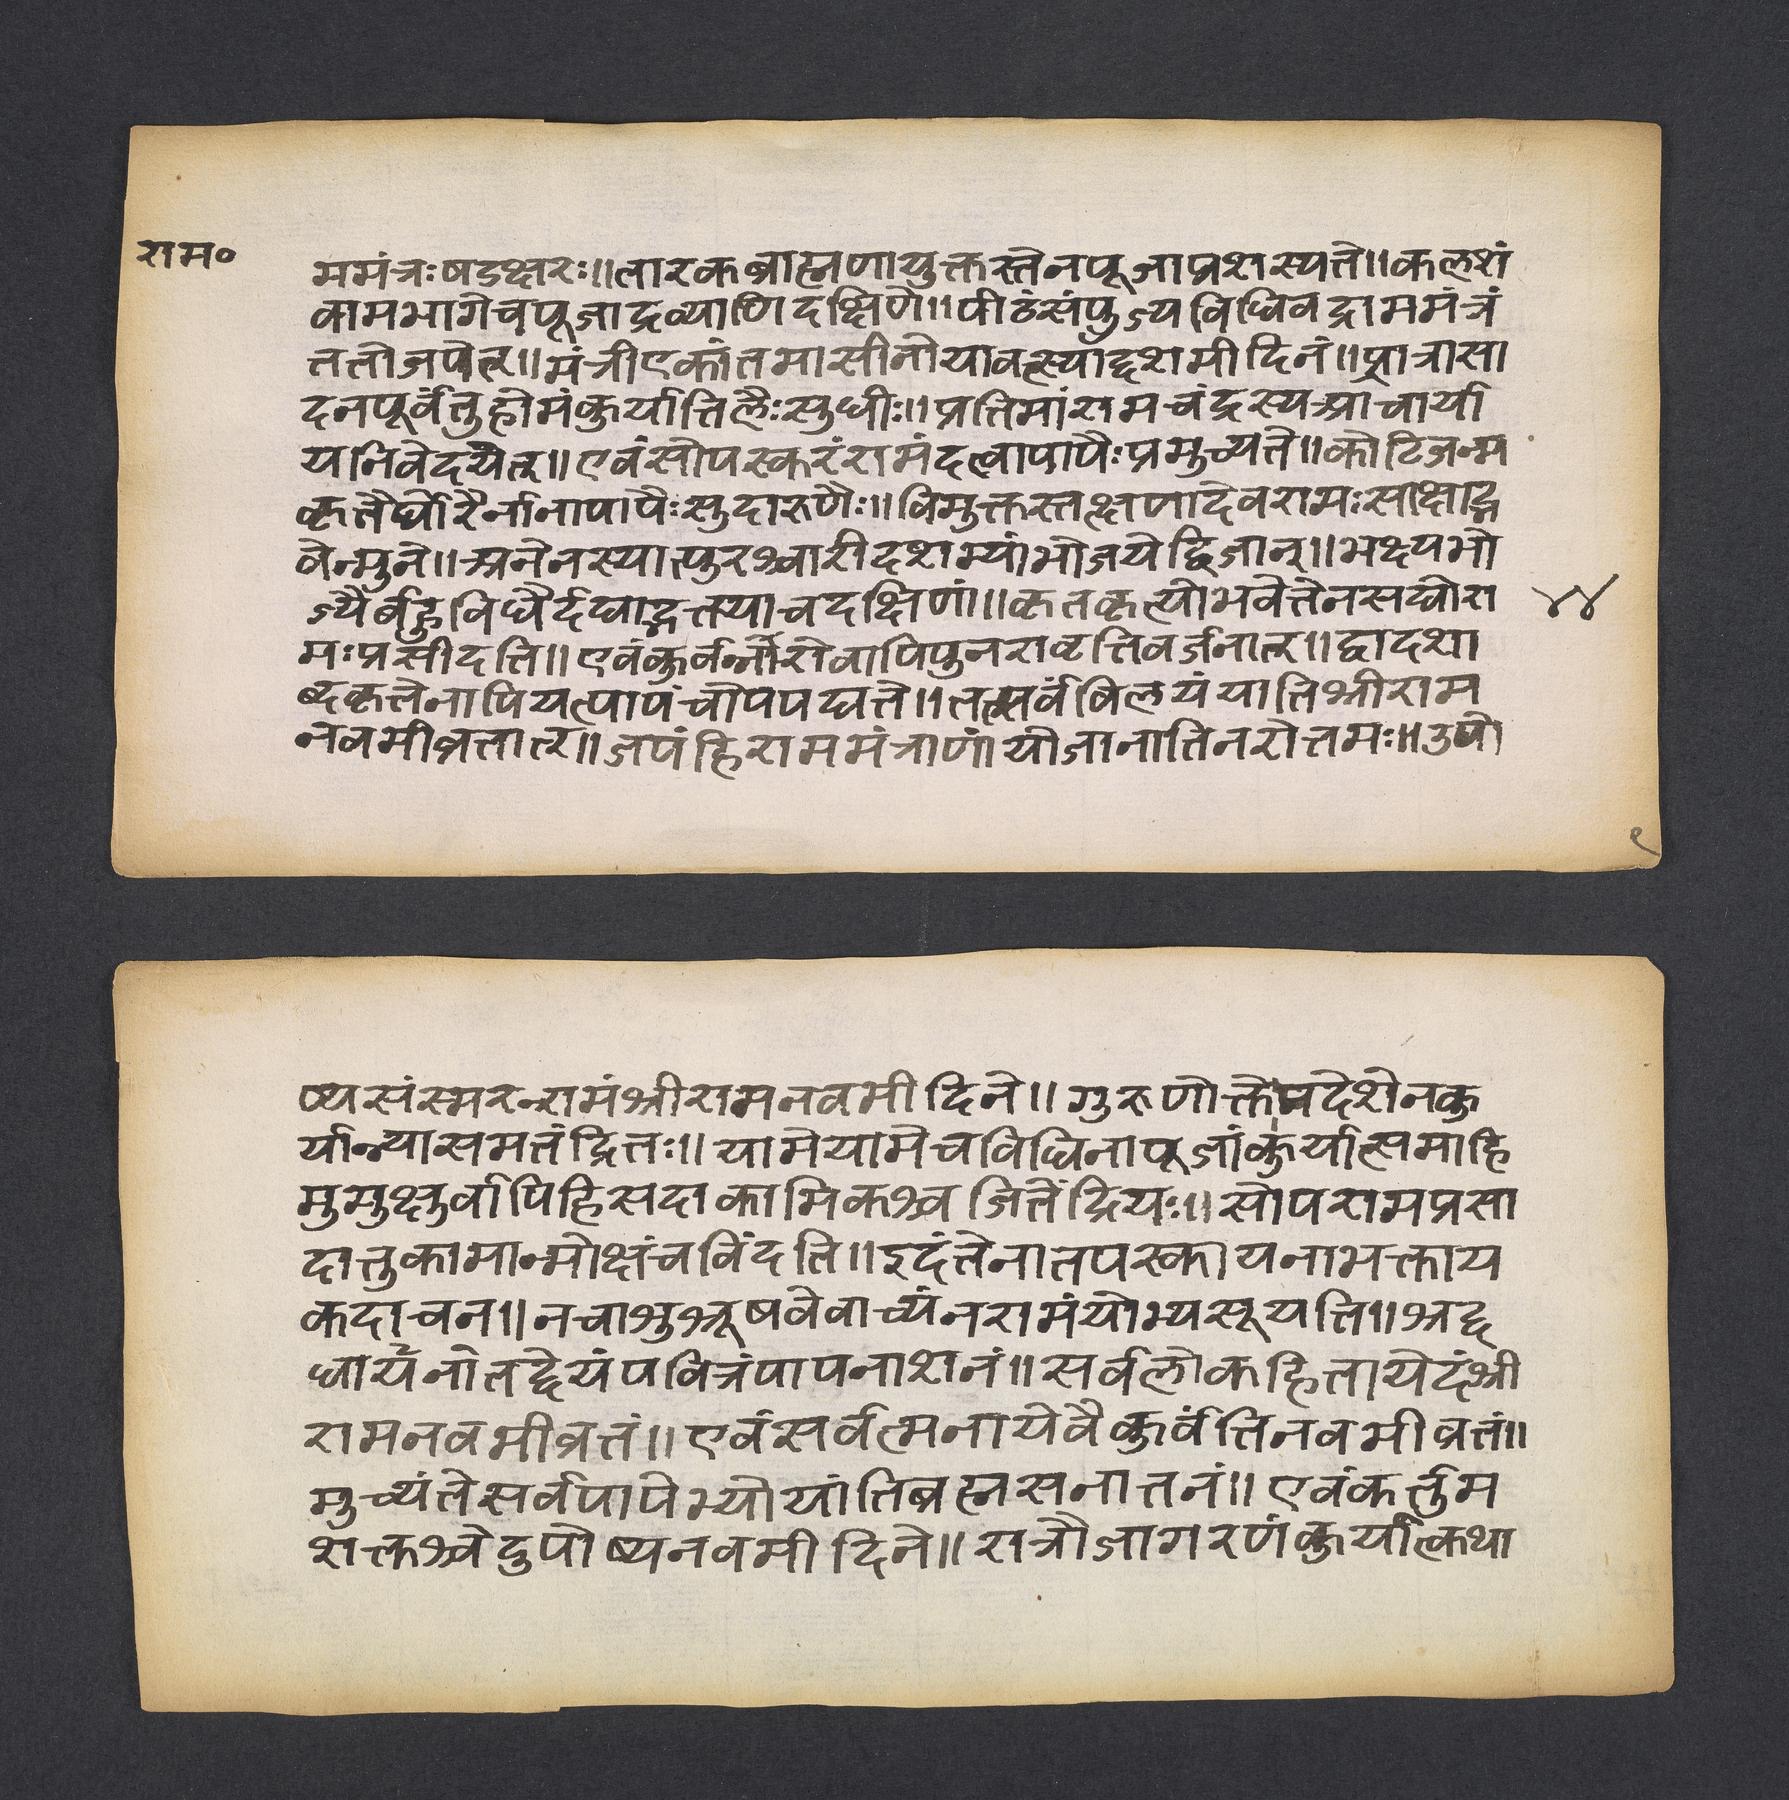 राम॰
ममंत्रःषडक्षरः॥तारकब्राह्मणायुक्तस्तेनपूजाप्रशस्यते॥कलशं
वामभागेचपूजाद्रव्याणिदक्षिणे॥पीठंसंपुज्यविधिवद्राममंत्रं
ततोजपेत्॥मंत्रीएकांतमासीनोयावत्स्याद्दशमीदिनं॥पात्रासा
दनपूर्वंतुहोमंकुर्यात्तिलैःसुधीः॥प्रतिमांरामचंद्रस्यआचार्या
यनिवेदयेत्॥एवंसोपस्करंरामंदत्वापापैःप्रमुच्यते॥कोटिजन्म
कृतैर्घोरैर्नानापापैःसुदारुणैः॥विमुक्तस्तत्क्षणादेवरामःसाक्षाद्भ
वेन्मुने॥अनेनस्यात्पुरश्चारीदशम्यांभोजयेद्द्विजान्॥भक्ष्यभो
ज्यैर्बहुविधैर्दद्याद्भक्त्याचदक्षिणां॥कृतकृत्योभवेत्तेनसद्योरा
मःप्रसीदति॥एवंकुर्वन्नरोवापिपुनरावृत्तिवर्जनात्॥द्वादशा
ब्दकृतेनापियत्पापंचोपपद्यते॥तत्सर्वंविलयंयातिश्रीराम
नवमीव्रतात्॥जपंहिराममंत्राणांयोजानातिनरोत्तमः॥उपो
४४
९
ष्यसंस्मरन्रामंश्रीरामनवमीदिने॥गुरुणोक्तोपदेशेनकु
र्यान्न्यासमतंद्रितः॥यामेयामेचविधिनापूजांकुर्यात्समाहि
मुमुक्षुर्वापिहिसदाकामिकश्चजितेंद्रियः॥सोपरामप्रसा
दात्तुकामान्मोक्षंचविंदति॥इदंतेनातपस्कायनाभक्ताय
कदाचन॥नचाशुश्रूषवेवाच्यंनरामंयोभ्यसूयति॥श्रद्द
धार्यनोतद्देयंपवित्रंपापनाशनं॥सर्वलोकहितायेदंश्री
रामनवमीव्रतं॥एवंसर्वत्मनायेवैकुर्वंतिनवमीव्रतं॥
मुच्यंतेसर्वपापेभ्योयांतिब्रह्मसनातनं॥एवंकर्त्तुम
शक्तश्चेदुपोष्यनवमीदिने॥रात्रौजागरणंकुर्यात्कथा